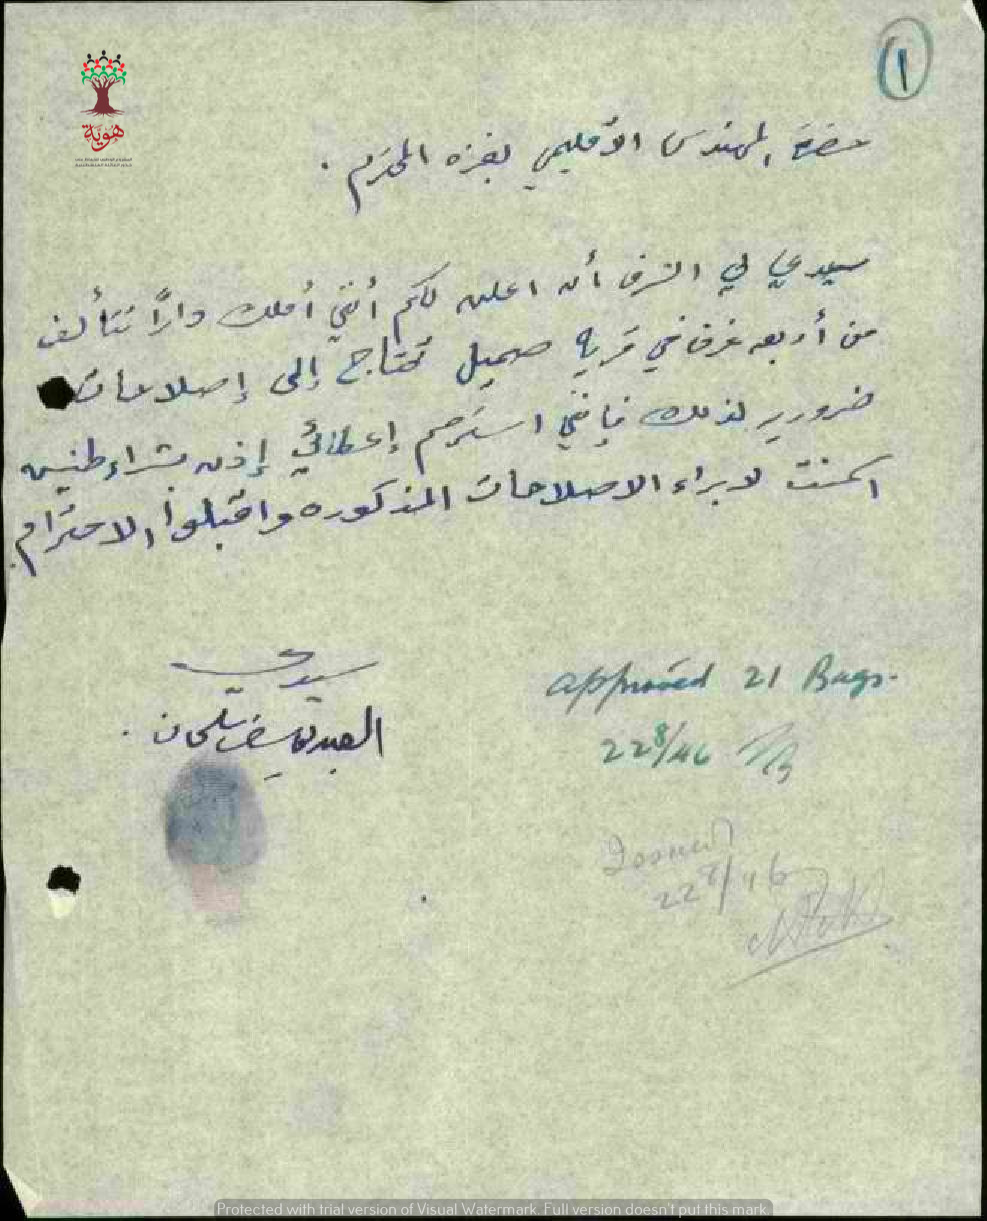 ١
هوية
حضرة المهندس الاقليمي بغزه المحترم .
سيدي لي الشرف أن اعلن لكم أنني أملك دارًا تتألف
من أربعه غرف في قرية صميل تحتاج إلى إصلاحات
ضروريه لذلك فإنني استرحم إعطائي إذن بشراء طنين
اسمنت لاجراء الاصلاحات المذكوره واقبلوا الاحترام
سيدي
العبد يوسف سلمان .
approved 21 Bags.
22 8/46
Issued
22 8/46
Protected with trial version of Visual Watermark. Full version doesn't put this mark.